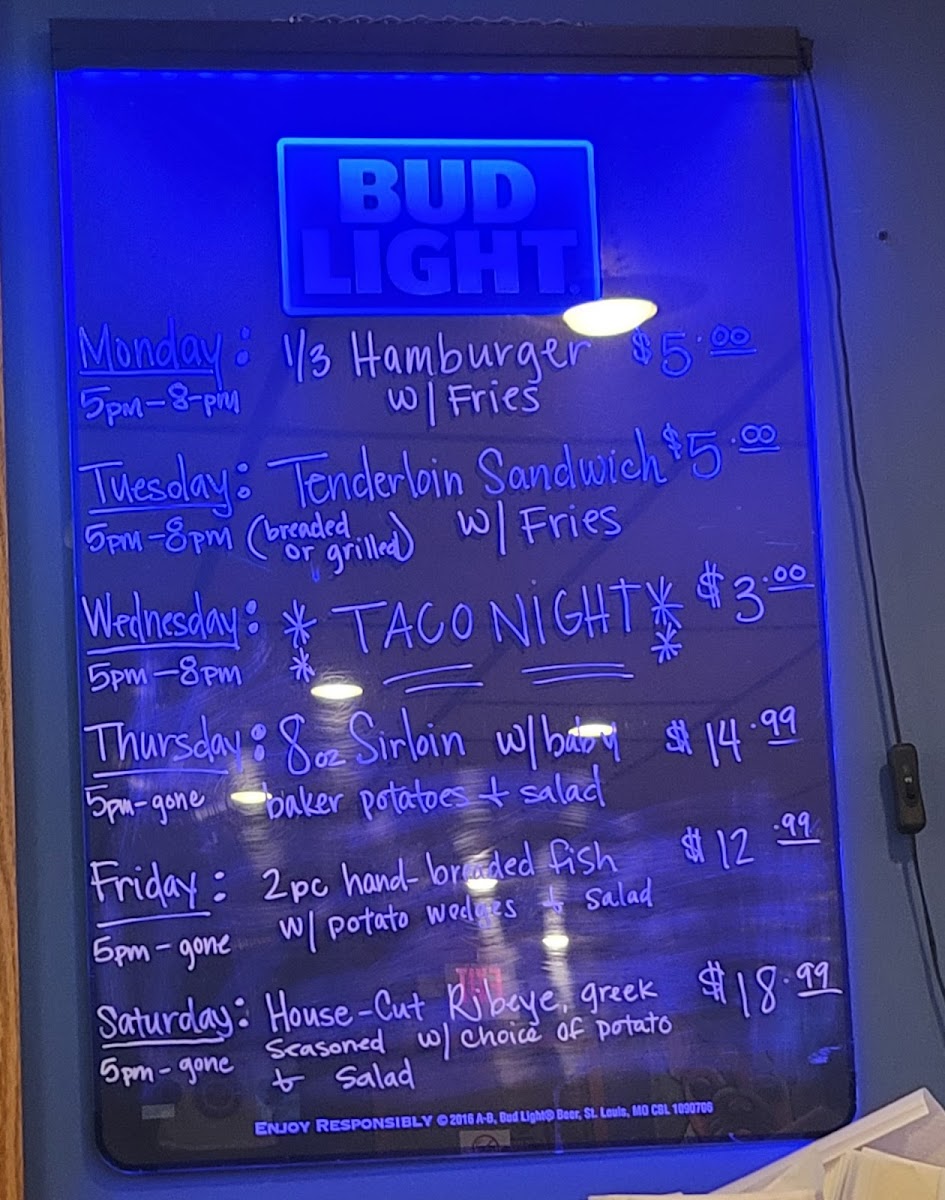 BUD
LIGHT
Monday: 1/3 Hamburger $5.00
5pm-8-pm w/ Fries
Tuesday: Tenderloin Sandwich $5.00
5pm-8pm (breaded or grilled) w/ Fries
Wednesday: * TACO NIGHT * $3.00
5pm-8pm * *
Thursday: 8oz Sirloin w/ baby $14.99
5pm-gone baker potatoes + salad
Friday: 2pc hand-breaded fish $12.99
5pm-gone w/ potato wedges + salad
Saturday: House-Cut Ribeye, greek $18.99
5pm-gone seasoned w/ choice of potato
+ salad
ENJOY RESPONSIBLY © 2016 A-B, Bud Light® Beer, St. Louis, MO CBL 1090706